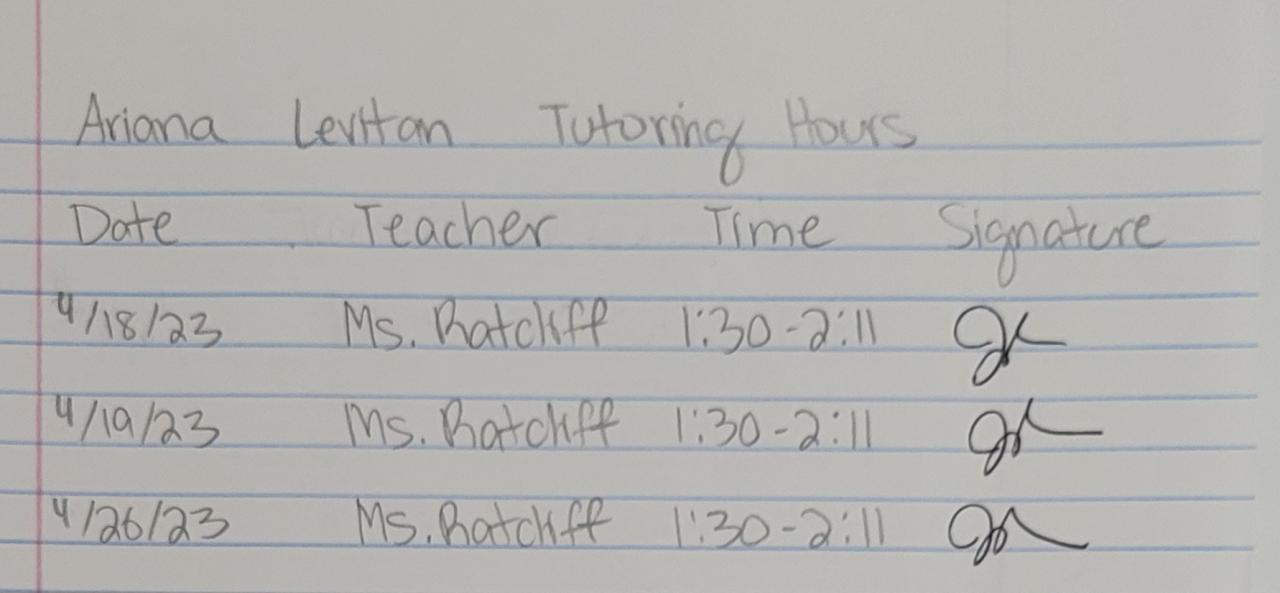 Ariana Levitan Tutoring Hours
Date Teacher Time Signature
4/18/23 Ms. Ratcliff 1:30-2:11
4/19/23 Ms. Ratcliff 1:30-2:11
4/26/23 Ms. Ratcliff 1:30-2:11